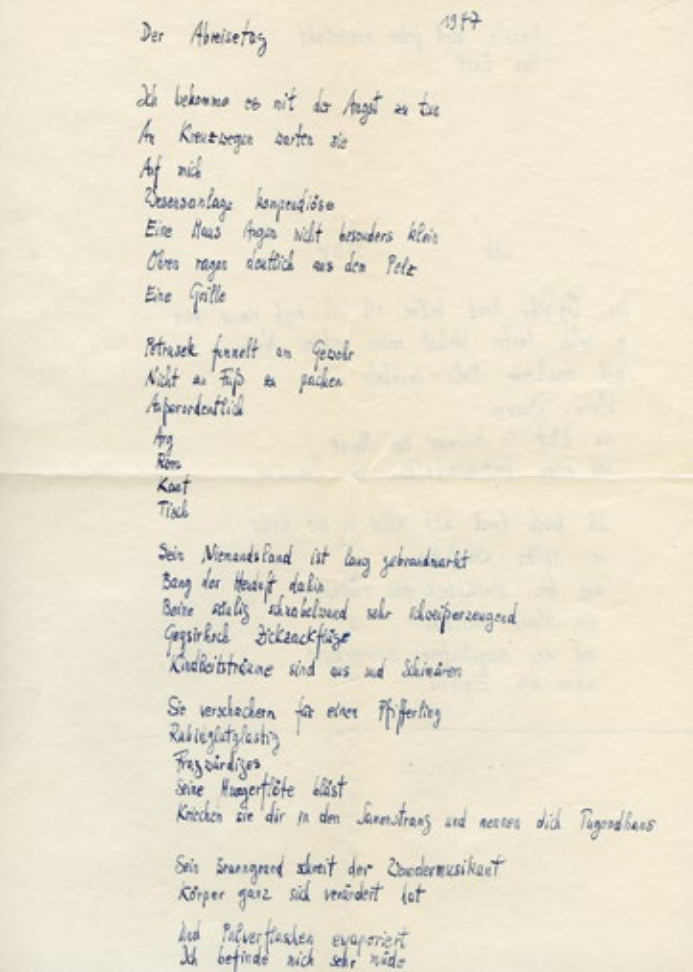 Der Abreisetag 1977
Ich bekomme es mit der Angst zu tun
An Kreuzwegen warten sie
Auf mich
Wesensanlage kompendiöse
Eine Maus Augen nicht besonders klein
Ohren ragen deutlich aus dem Pelz
Eine Grille
Petrusek fummelt am Gewehr
Nicht zu Fuß zu packen
Außerordentlich
Arg
Röm
Kaat
Tisch
Sein Niemandsland ist lang gebrandmarkt
Bang der dahin
Beine sehr
Zickzackflüge
Kindheitsträume sind aus und Schimären
Sie verschachern für einen Pfifferling
Rubinglutglastig
Fragwürdiges
Seine Hungerflöte bläst
Kriechen sie dir in den Samenstrang und nennen dich Tugendhans
Sein schreit der Wandermusikant
Körper ganz sich verändert hat
Und Pulverflaschen evaporiert
Ich befinde mich sehr müde